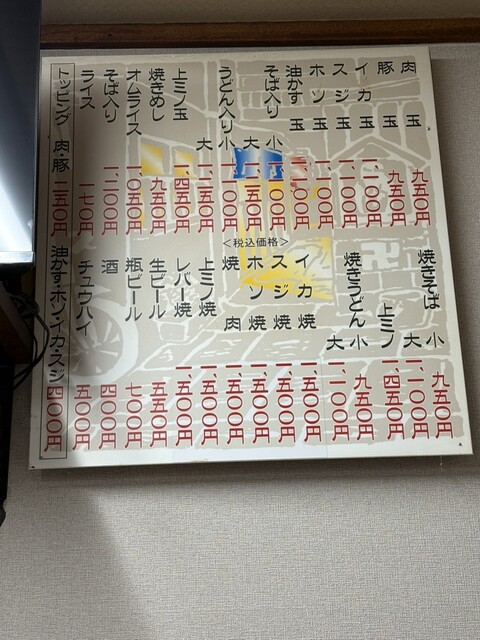 肉玉 九五〇円
豚玉 九五〇円
イカ玉 一、一〇〇円
スジ玉 一、一〇〇円
ホソ玉 一、一〇〇円
油かす玉 一、一〇〇円
そば入り 小
大
うどん入り 小
大
上ミノ玉 一、四五〇円
焼きめし 九五〇円
オムライス 一、〇五〇円
そば入り 一、二〇〇円
ライス 一七〇円
<税込価格>
焼きそば 小 九五〇円
大 一、一〇〇円
上ミノ 一、四五〇円
焼きうどん 小 九五〇円
大 一、一〇〇円
イカ焼 一、五〇〇円
スジ焼 一、五〇〇円
ホソ焼 一、五〇〇円
焼肉 一、五〇〇円
上ミノ焼 一、五〇〇円
レバー焼 一、五〇〇円
生ビール 五五〇円
瓶ビール 七〇〇円
酒 四〇〇円
チュウハイ 五〇〇円
トッピング 肉・豚 二五〇円 油かす・ホソ・イカ・スジ 四〇〇円